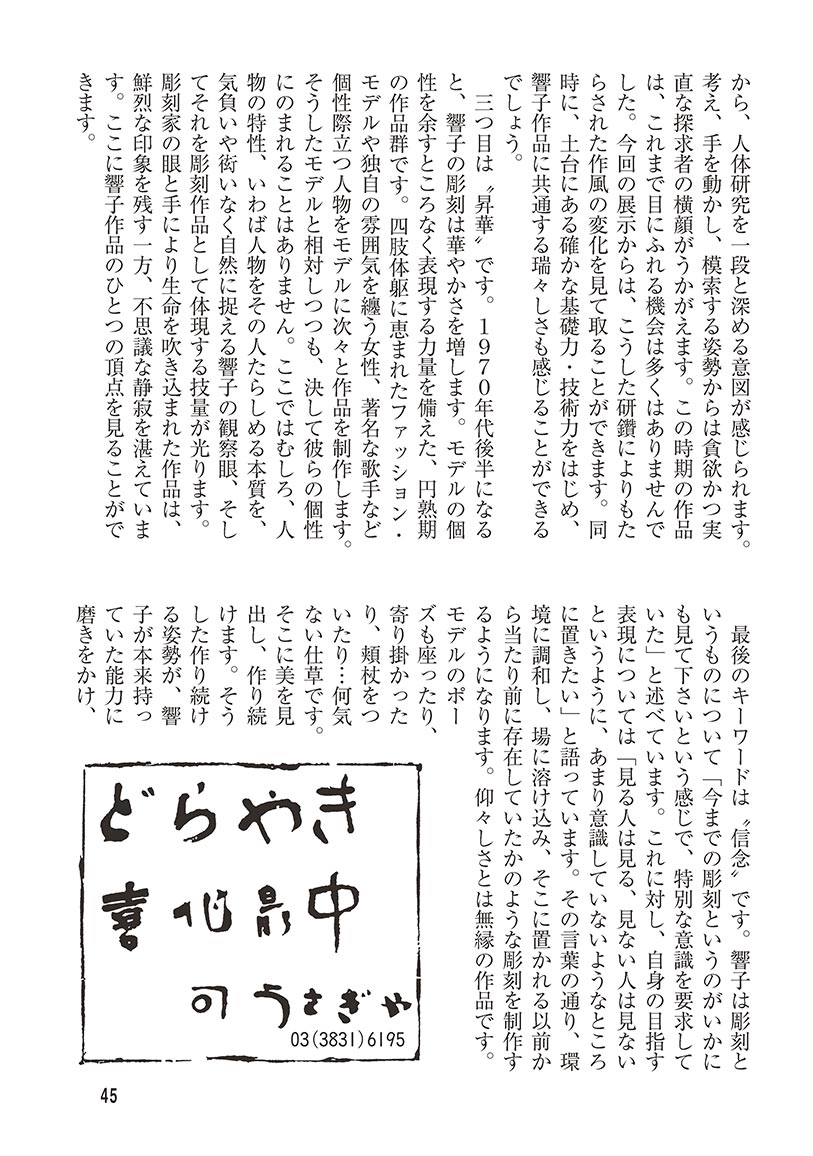 から、人体研究を一段と深める意図が感じられます。
考え、手を動かし、模索する姿勢からは貪欲かつ実
直な探求者の横顔がうかがえます。この時期の作品
は、これまで目にふれる機会は多くはありませんで
した。今回の展示からは、こうした研鑽によりもた
らされた作風の変化を見て取ることができます。同
時に、土台にある確かな基礎力・技術力をはじめ、
響子作品に共通する瑞々しさも感じることができる
でしょう。
三つ目は〝昇華〟です。1970年代後半になる
と、響子の彫刻は華やかさを増します。モデルの個
性を余すところなく表現する力量を備えた、円熟期
の作品群です。四肢体躯に恵まれたファッション・
モデルや独自の雰囲気を纏う女性、著名な歌手など
個性際立つ人物をモデルに次々と作品を制作します。
そうしたモデルと相対しつつも、決して彼らの個性
にのまれることはありません。ここではむしろ、人
物の特性、いわば人物をその人たらしめる本質を、
気負いや衒いなく自然に捉える響子の観察眼、そし
てそれを彫刻作品として体現する技量が光ります。
彫刻家の眼と手により生命を吹き込まれた作品は、
鮮烈な印象を残す一方、不思議な静寂を湛えていま
す。ここに響子作品のひとつの頂点を見ることがで
きます。
最後のキーワードは〝信念〟です。響子は彫刻と
いうものについて「今までの彫刻というのがいかに
も見て下さいという感じで、特別な意識を要求して
いた」と述べています。これに対し、自身の目指す
表現については「見る人は見る、見ない人は見ない
というように、あまり意識していないようなところ
に置きたい」と語っています。その言葉の通り、環
境に調和し、場に溶け込み、そこに置かれる以前か
ら当たり前に存在していたかのような彫刻を制作す
るようになります。仰々しさとは無縁の作品です。
モデルのポー
ズも座ったり、
寄り掛かった
り、頬杖をつ
いたり…何気
ない仕草です。
そこに美を見
出し、作り続
けます。そう
した作り続け
る姿勢が、響
子が本来持っ
ていた能力に
磨きをかけ、
どらやき
喜作最中
のうさぎや
03(3831)6195
45